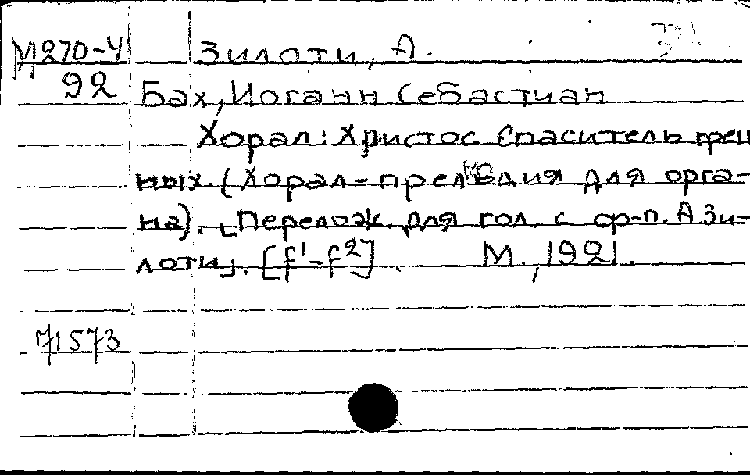 М270-4 Зилоти, А.
92 Бах, Иоганн Себастиан
Хорал: Христос Спаситель греш
ных. (Хорал-прелюдия для орга-
на). [Перелож. для гол. с ф-п. А Зи-
лоти]. [f¹-f²] М., 1921.
71573